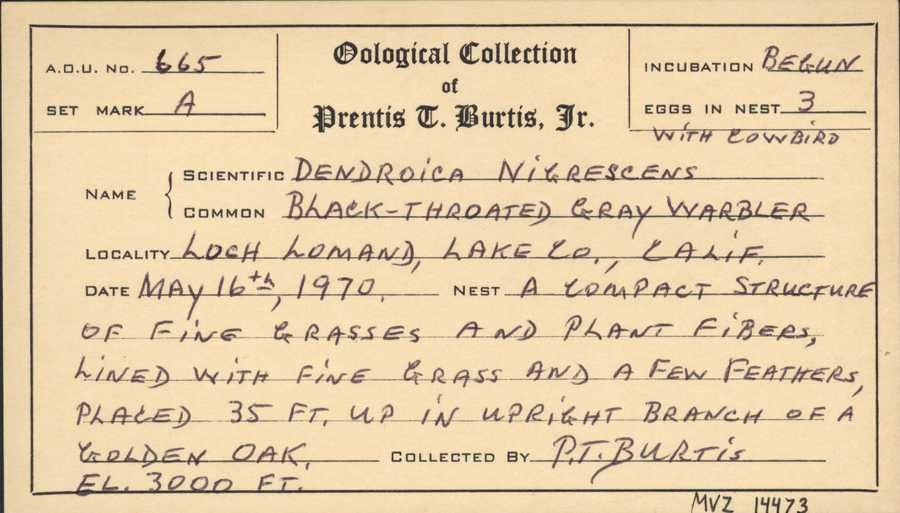 Oological Collection
of
Prentis T. Burtis, Jr.
A.O.U. No. 665
SET MARK A
INCUBATION BEGUN
EGGS IN NEST 3
WITH COWBIRD
NAME
SCIENTIFIC DENDROICA NIGRESCENS
COMMON BLACK-THROATED GRAY WARBLER
LOCALITY LOCH LOMAND, LAKE CO., CALIF.
DATE MAY 16th, 1970. NEST A COMPACT STRUCTURE
OF FINE GRASSES AND PLANT FIBERS,
LINED WITH FINE GRASS AND A FEW FEATHERS,
PLACED 35 FT. UP IN UPRIGHT BRANCH OF A
GOLDEN OAK. COLLECTED BY P.T. BURTIS
EL. 3000 FT.
MVZ 14473